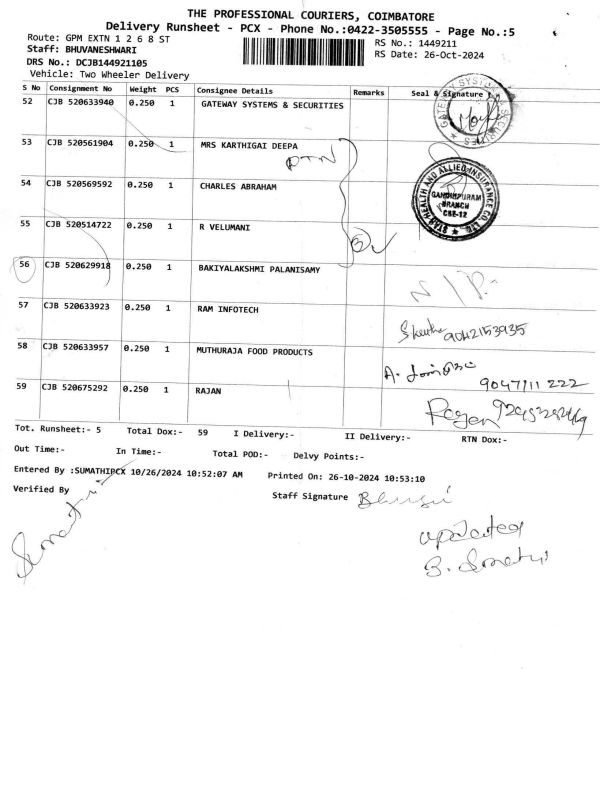 THE PROFESSIONAL COURIERS, COIMBATORE
Delivery Runsheet - PCX - Phone No.:0422-3505555 - Page No.:5
Route: GPM EXTN 1 2 6 8 ST
RS No.: 1449211
Staff: BHUVANESHWARI
RS Date: 26-Oct-2024
DRS No.: DCJB144921105
Vehicle: Two Wheeler Delivery
S No Consignment No Weight PCS Consignee Details Remarks Seal & Signature
52 CJB 520633940 0.250 1 GATEWAY SYSTEMS & SECURITIES
GATEWAY SYSTEMS & SECURITIES
53 CJB 520561904 0.250 1 MRS KARTHIGAI DEEPA
RTN
54 CJB 520569592 0.250 1 CHARLES ABRAHAM
STAR HEALTH AND ALLIED INSURANCE CO. LTD.
GANDHIPURAM
BRANCH
CBE-12
55 CJB 520514722 0.250 1 R VELUMANI
56 CJB 520629918 0.250 1 BAKIYALAKSHMI PALANISAMY
57 CJB 520633923 0.250 1 RAM INFOTECH
9042153935
58 CJB 520633957 0.250 1 MUTHURAJA FOOD PRODUCTS
9047111 222
59 CJB 520675292 0.250 1 RAJAN
Rajan
Tot. Runsheet:- 5 Total Dox:- 59 I Delivery:- II Delivery:- RTN Dox:-
Out Time:- In Time:- Total POD:- Delvy Points:-
Entered By :SUMATHIPCX 10/26/2024 10:52:07 AM Printed On: 26-10-2024 10:53:10
Verified By Staff Signature
Sumathi
updated